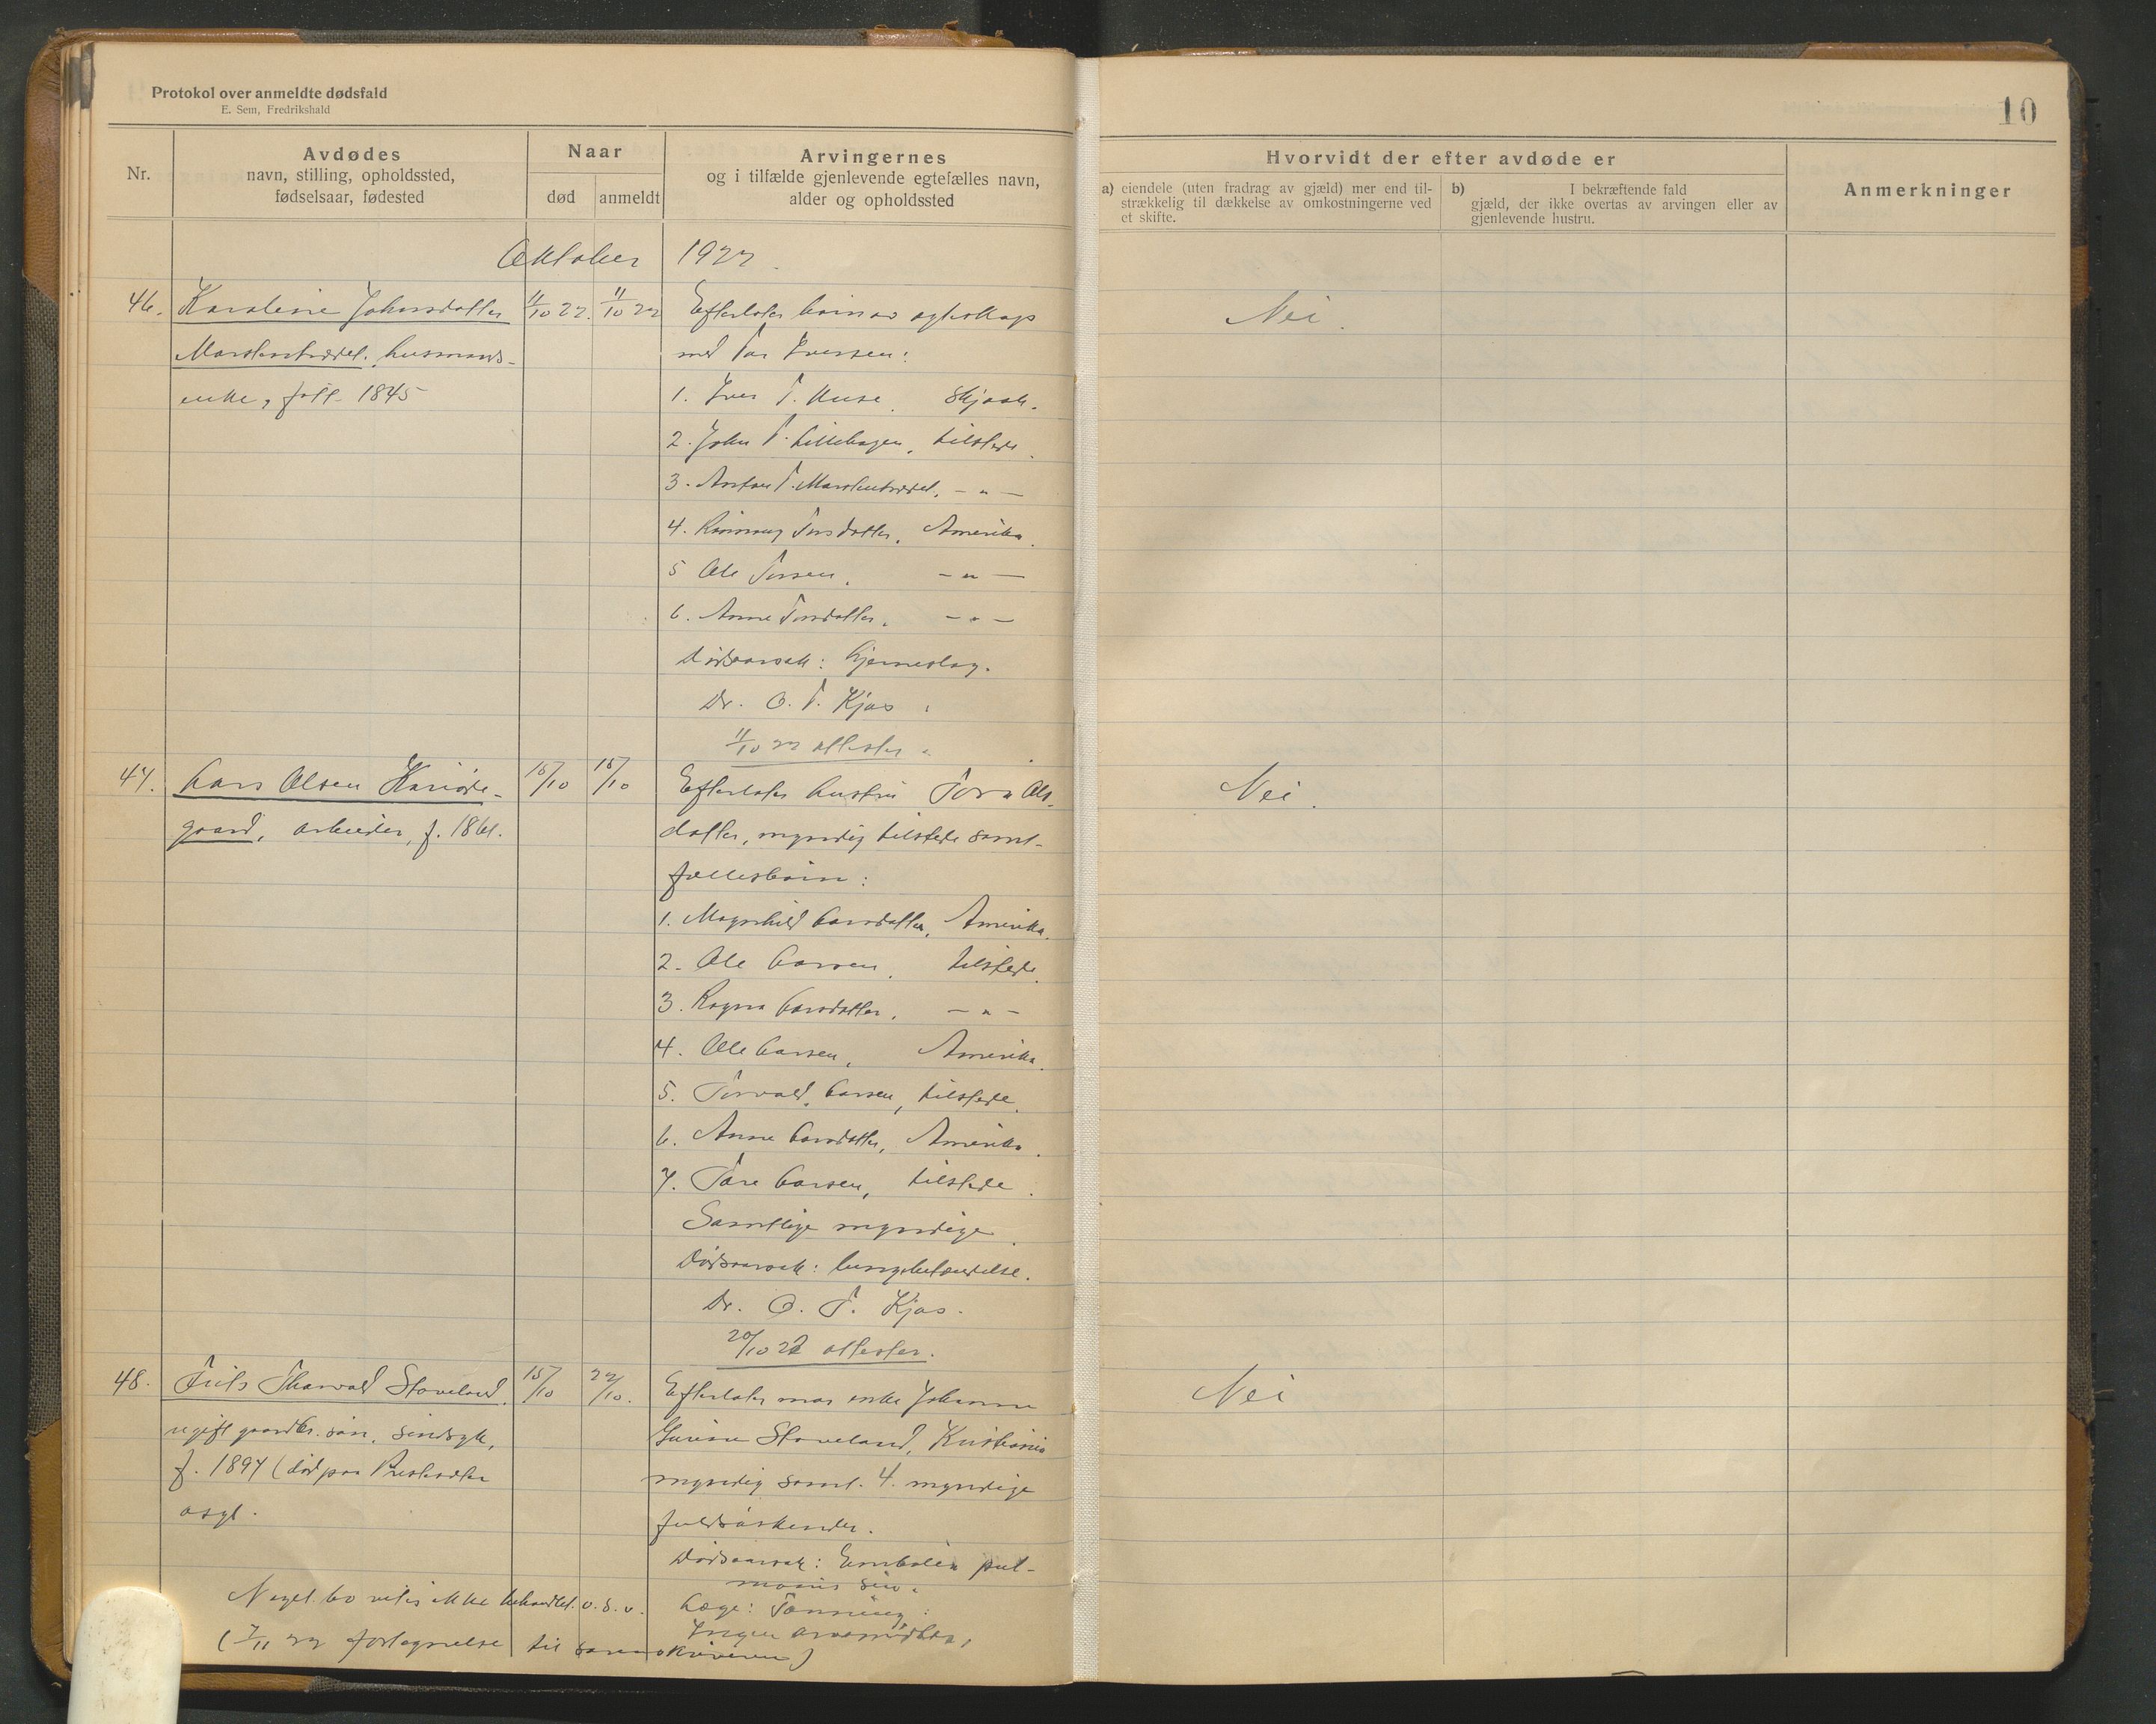 Protokol over anmeldte dødsfald
E. Sem, Fredrikshald
10
Nr.
Avdødes
navn, stilling, opholdssted,
fødselsaar, fødested
Naar
død
anmeldt
Arvingernes
og i tilfælde gjenlevende egtefælles navn,
alder og opholdssted
Hvorvidt der efter avdøde er
a) eiendele (uten fradrag av gjæld) mer end til-
strækkelig til dækkelse av omkostningerne ved
et skifte.
b) I bekræftende fald
gjæld, der ikke overtas av arvingen eller av
gjenlevende hustru.
Anmerkninger
Oktober 1922
46. Karoline Johnsdatter 11/10 22. 11/10 22 Efterlater barn av egteskap Nei.
husmands- med Tor Iversen:
enke, født 1845 1. Iver T. Skjaak.
2. John T. Lillehagen, tilstede.
3. T. - " -
4. Rønnaug Torsdatter, Amerika.
5 Ole Torsen. - " -
6. Anne Torsdatter. - " -
Dødsaarsak: hjerneslag.
Dr. O. T. Kjos.
11/10 22 attester.
47. Lars Olsen 15/10 15/10 Efterlater hustru Tora Ols- Nei.
gaard, arbeider, f. 1861. datter, myndig tilstede samt
fællesbørn:
1. Magnhild Larsdatter, Amerika.
2. Ole Larsen, tilstede.
3. Ragna Larsdatter, - " -
4. Ole Larsen, Amerika.
5. Torvald Larsen, tilstede.
6. Anne Larsdatter, Amerika.
7. Tore Larsen, tilstede.
Samtlige myndige.
Dødsaarsak: lungebetændelse.
Dr. O. T. Kjos.
20/10 22 attester.
48. Frits Tharvald Stoveland, 15/10 22/10. Efterlater mor enke Johanne Nei
ugift gaardbr. søn, sindsyk, Stoveland, Kristiania
f. 1897 (død paa Presteseter myndig samt 4 myndige
asyl. fuldsøskender.
Dødsaarsak: Embolia pul-
monis sin.
Læge: Tønning.
Ingen arvemidler.
Negl. bo vites ikke behandlet o. s. v.
(7/11 22 til sorenskriveren)